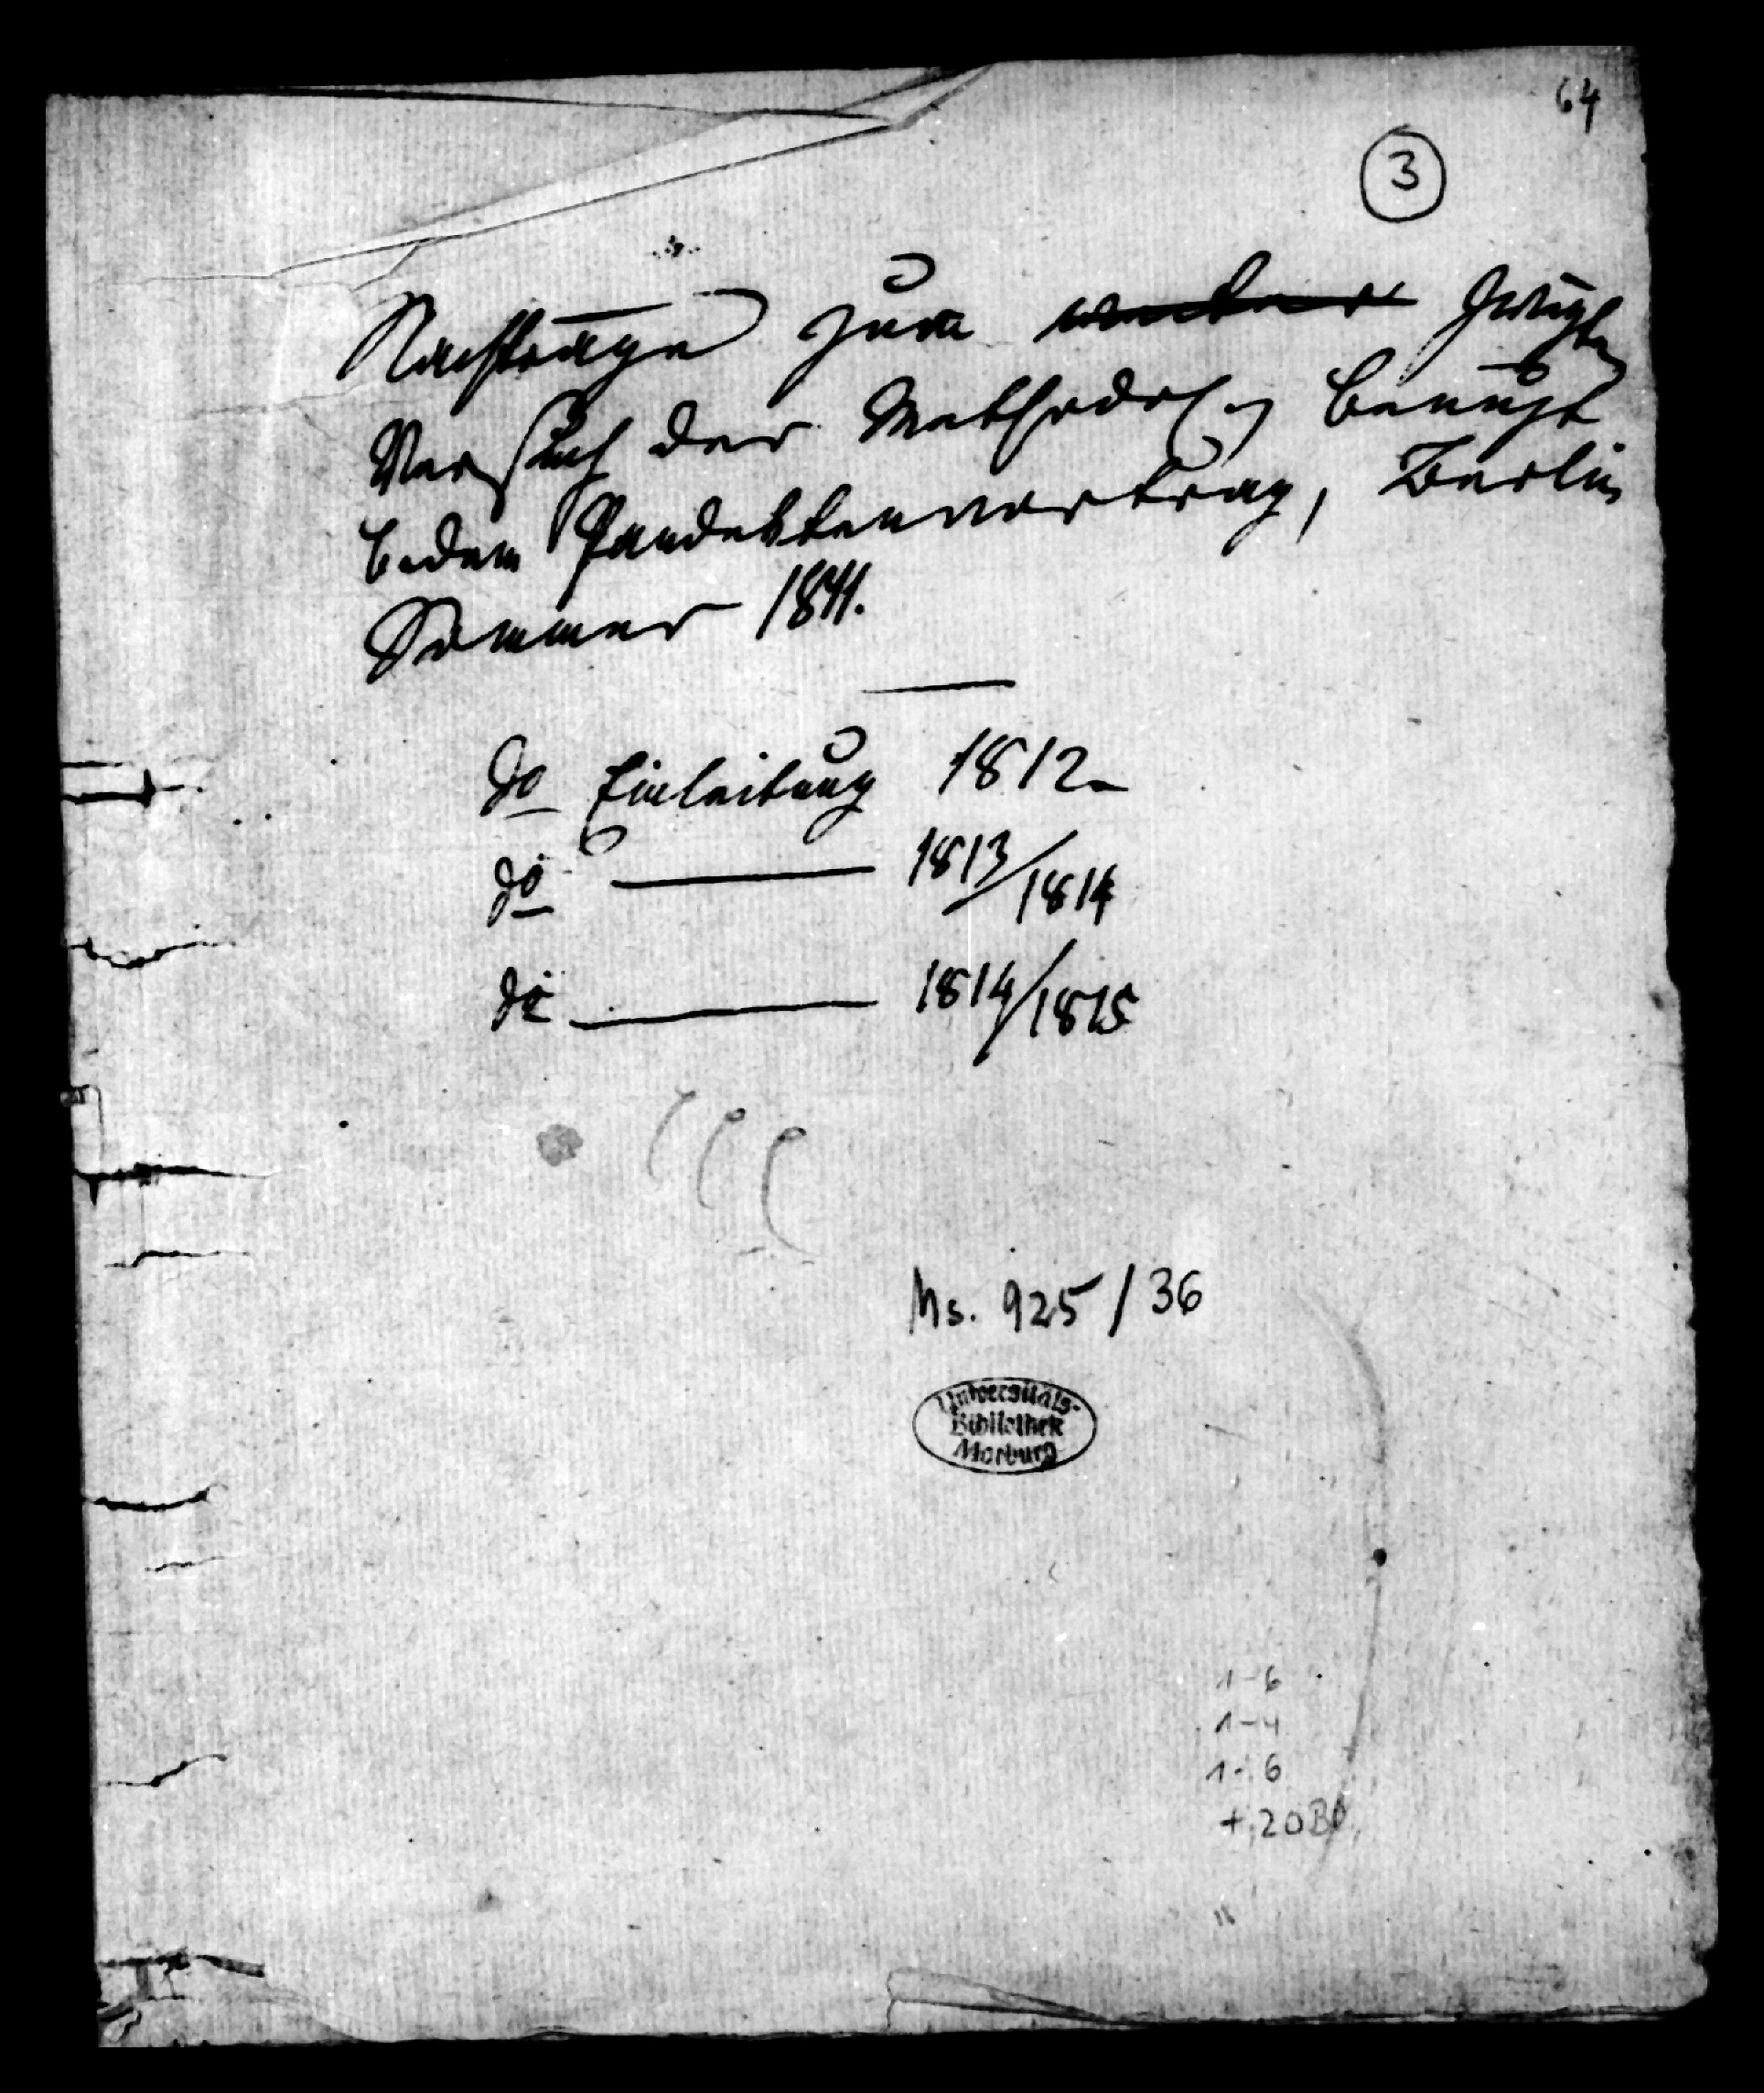 64
3
Nachträge zum zweyten
Versuch der Methodol. benuzt
b. dem Pandektenvortrag, Berlin
Sommer 1811.
do Einleitung 1812
do 1813/1814
do 1814/1815
Ms. 925/36
Universitäts-
Bibliothek
Marburg
1-6
1-4
1-6
+ 20 Bl